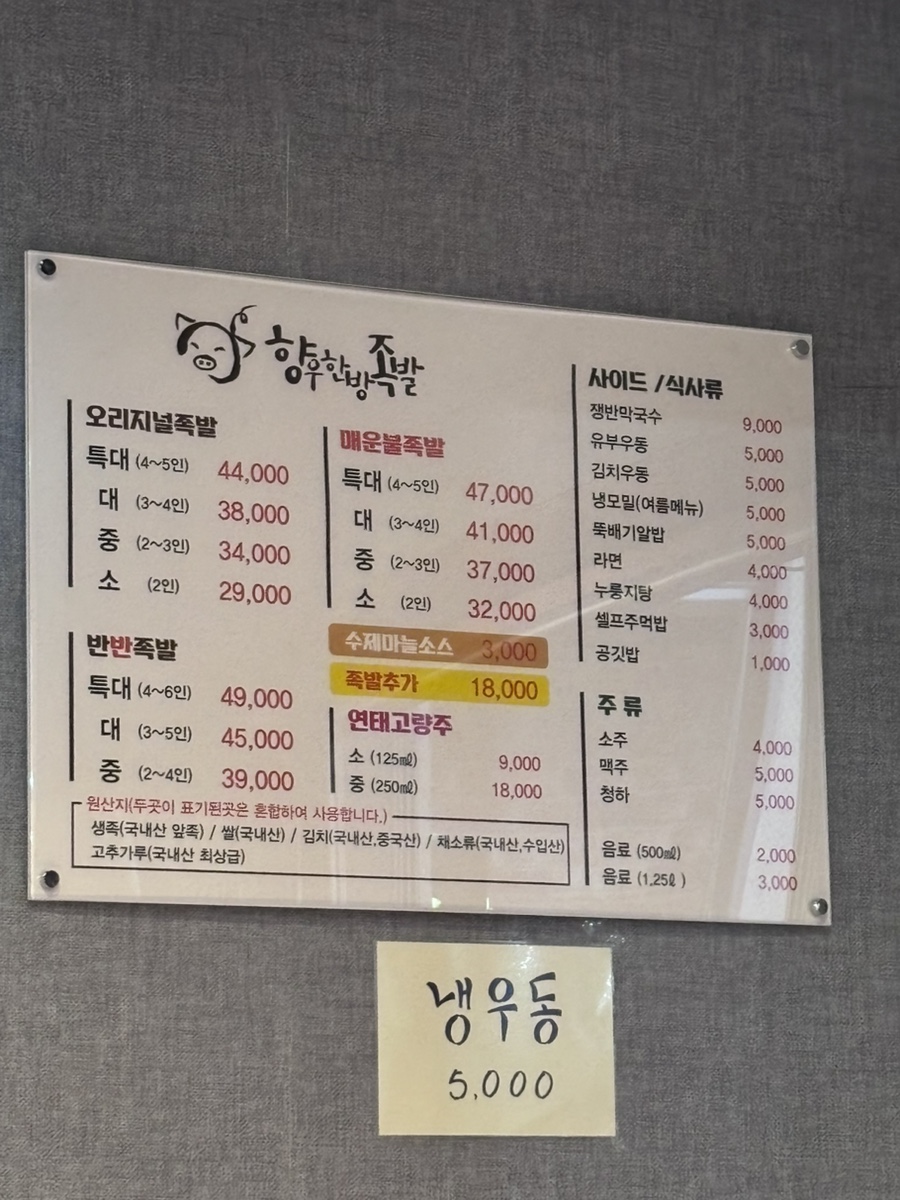 향우한방족발
오리지널족발
특대 (4~5인) 44,000
대 (3~4인) 38,000
중 (2~3인) 34,000
소 (2인) 29,000
반반족발
특대 (4~6인) 49,000
대 (3~5인) 45,000
중 (2~4인) 39,000
매운불족발
특대 (4~5인) 47,000
대 (3~4인) 41,000
중 (2~3인) 37,000
소 (2인) 32,000
수제마늘소스 3,000
족발추가 18,000
연태고량주
소 (125㎖) 9,000
중 (250㎖) 18,000
원산지(두곳이 표기된곳은 혼합하여 사용합니다.)
생족(국내산 앞족) / 쌀(국내산) / 김치(국내산,중국산) / 채소류(국내산,수입산)
고추가루(국내산 최상급)
사이드 /식사류
쟁반막국수 9,000
유부우동 5,000
김치우동 5,000
냉모밀(여름메뉴) 5,000
뚝배기알밥 5,000
라면 4,000
누룽지탕 4,000
셀프주먹밥 3,000
공깃밥 1,000
주 류
소주 4,000
맥주 5,000
청하 5,000
음료 (500㎖) 2,000
음료 (1.25ℓ ) 3,000
냉우동
5,000